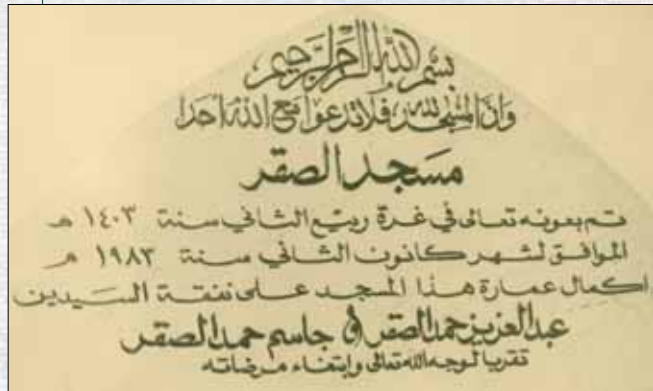 بسم الله الرحمن الرحيم
وأن المسجد لله فلا تدعوا مع الله أحدا
مسجد الصقر
تم بعونه تعالى في غرة ربيع الثاني سنة ١٤٠٣ هـ
الموافق لشهر كانون الثاني سنة ١٩٨٣ م
اكمال عمارة هذا المسجد على نفقة السيدين
عبد العزيز حمد الصقر و جاسم حمد الصقر
تقربا لوجه الله تعالى وابتغاء مرضاته